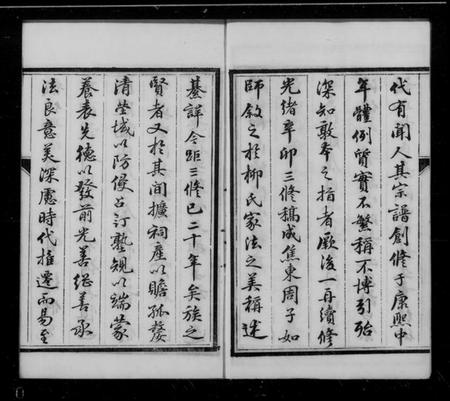 代有聞人其宗譜創修于康熙中
年體例質實不繁稱不博引殆
深知敦本之指者厥後一再續修
光緒辛卯三修稿成焦東周子如
師敘之於柳氏家法之美稱述
綦詳今距三修已二十年矣族之
賢者又於其間擴祠產以贍孤嫠
清塋域以防侵占訂塾規以端蒙
養表先德以發前光善繼善承
法良意美深慮時代推遷而易至